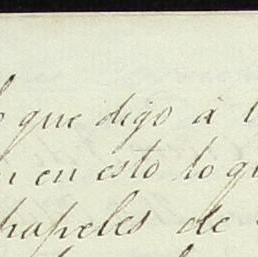 que digo á
en esto lo
papeles de